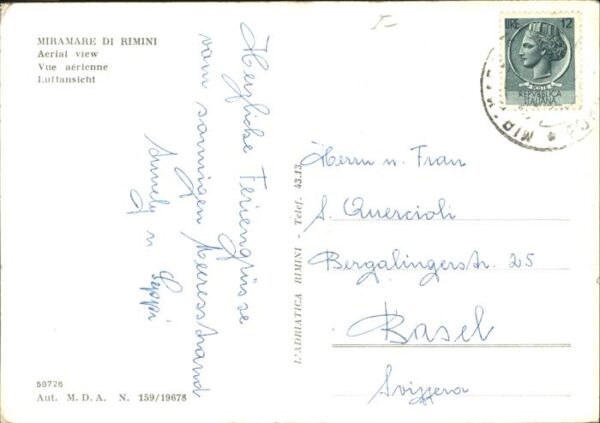 MIRAMARE DI RIMINI
Aerial view
Vue aérienne
Luftansicht
Herzliche Feriengrüsse
vom sonnigen Meeresstrand
Seppi
LIRE 12
POSTE
REPVBBLICA
ITALIANA
L'ADRIATICA RIMINI - Telef. 43.13
Herrn u. Frau
S. Quercioli
Bergalingerstr. 25
Basel
Svizzera
58726
Aut. M. D. A. N. 159/19678